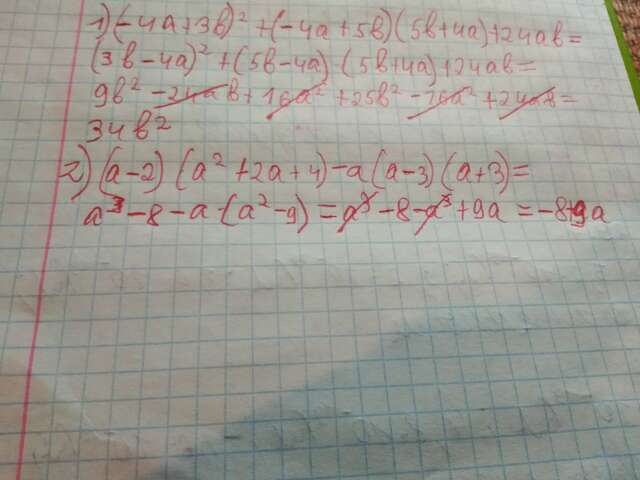 1) (-4a+3b)² + (-4a+5b)(5b+4a)+24ab=
(3b-4a)² + (5b-4a)·(5b+4a)+24ab=
9b² - 24ab + 16a² + 25b² - 16a² + 24ab =
34b²
2) (a-2)(a²+2a+4)-a(a-3)(a+3)=
a³-8-a·(a²-9)=a³-8-a³+9a=-8+9a